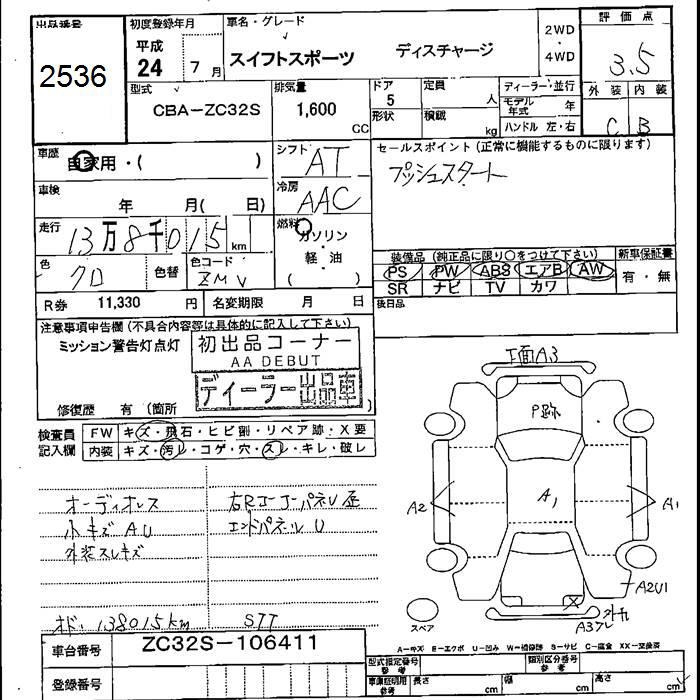 出品番号
2536
初度登録年月
平成
24 7 月
車名・グレード
スイフトスポーツ ディスチャージ
2WD
・
4WD
評価点
3.5
型式
CBA-ZC32S
排気量
1,600
CC
ドア
5
形状
定員
人
積載
kg
ディーラー・並行
モデル年式 年
ハンドル 左・右
外装 内装
C B
車歴
自家用・( )
シフト
AT
セールスポイント (正常に機能するものに限ります)
プッシュスタート
車検
年 月( 日)
冷房
AAC
走行
13万8千015km
燃料
ガソリン
軽・油
( )
色
クロ
色替
色コード
ZMV
装備品 (純正品に限り○をつけて下さい)
PS PW ABS エアB AW
SR ナビ TV カワ
新車保証書
有・無
R券 11,330 円
名変期限 月 日
後日品
注意事項申告欄 (不具合内容等は具体的に記入して下さい)
ミッション警告灯点灯
初出品コーナー
AA DEBUT
ディーラー出品車
修復歴 有 (箇所
検査員
記入欄
FW キズ・飛石・ヒビ割・リペア跡・X要
内装 キズ・汚レ・コゲ・穴・スレ・キレ・破レ
オーディオレス
小キズ A U
外装スレキズ
右Rコーナーパネル歪
エンドパネル U
オド.138015km
STT
下面A3
P跡
A1
A2
A1
A2U1
X
A3
スペア
A-キズ E-エクボ U-凹み W-補修跡 S-サビ C-腐食 XX-交換済
車台番号
ZC32S-106411
登録番号
型式指定番号
参考
類別区分番号
参考
車庫証明用
参考
長さ cm
幅 cm
高さ cm